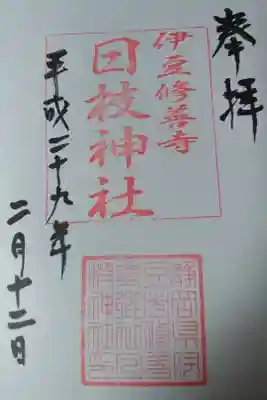 奉拝
伊豆修善寺
日枝神社
平成二十九年
二月十二日